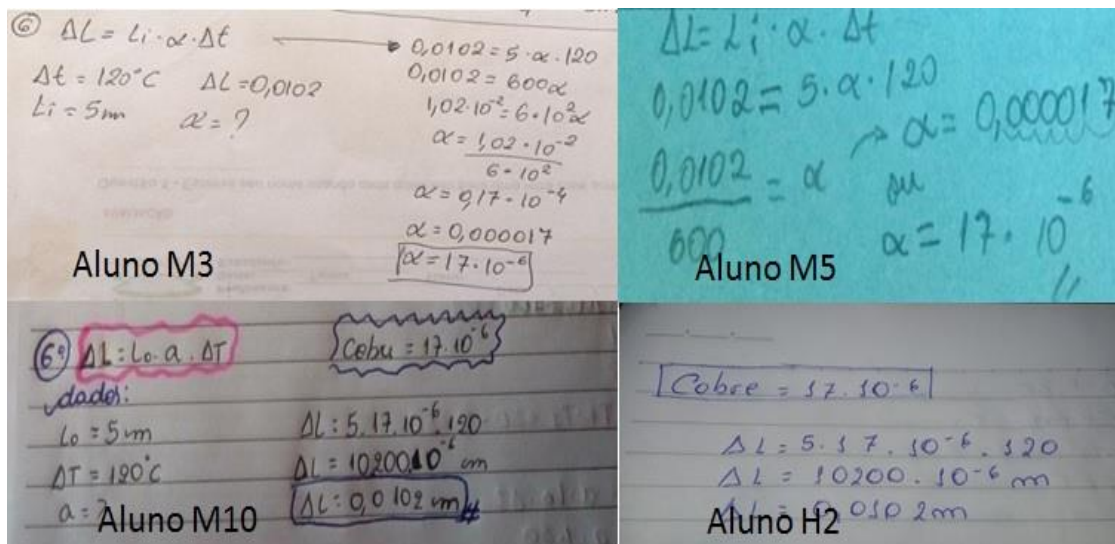 6 ΔL = Li · α · Δt
Δt = 120°C ΔL = 0,0102
Li = 5m α = ?
0,0102 = 5 · α · 120
0,0102 = 600α
1,02 · 10⁻² = 6 · 10² α
α = 1,02 · 10⁻²
6 · 10²
α = 0,17 · 10⁻⁴
α = 0,000017
α = 17 · 10⁻⁶
Aluno M3
ΔL = Li · α · Δt
0,0102 = 5 · α · 120
0,0102 = α
600
α = 0,000017
ou
α = 17 · 10⁻⁶
Aluno M5
6ª ΔL: Lo. a. ΔT
Cobu = 17.10⁻⁶
dados:
Lo = 5m
ΔT = 120°C
a = ?
ΔL: 5.17.10⁻⁶.120
ΔL = 10200.10⁻⁶ m
ΔL: 0,0102 m
Aluno M10
Cobre = 17.10⁻⁶
ΔL = 5.17.10⁻⁶.120
ΔL = 10200.10⁻⁶ m
ΔL = 0,0102m
Aluno H2